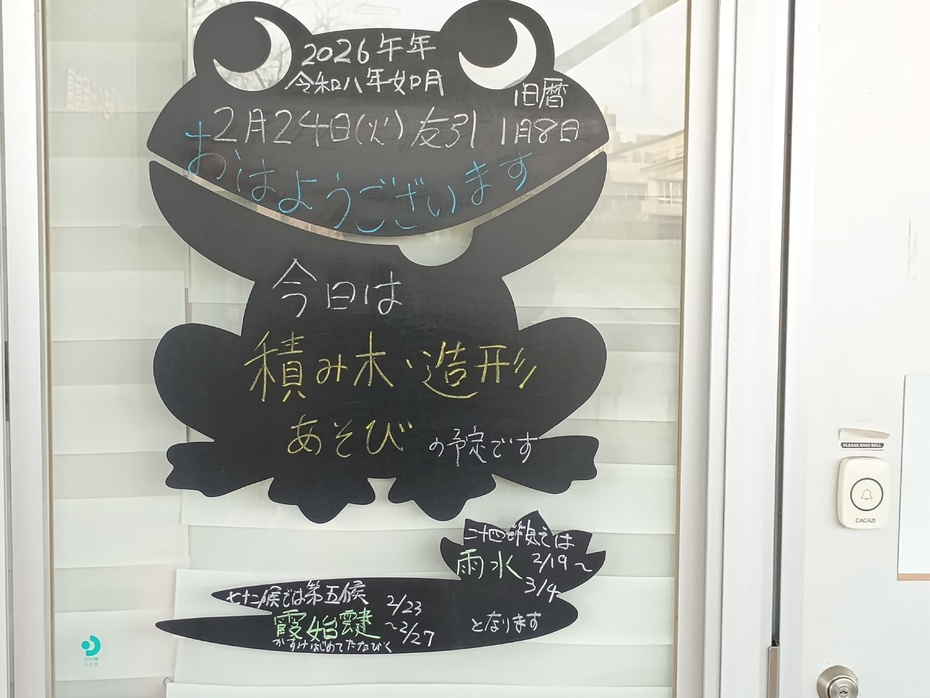 2026午年
令和八年如月
旧暦
2月24日(火)友引 1月8日
おはようございます
今日は
積み木・造形
あそび の予定です
二十四節気では
雨水 2/19～
3/4
七十二候では第五候 2/23
霞始靆 ～2/27
かすみはじめてたなびく
となります
PLEASE RING BELL
CACAZI